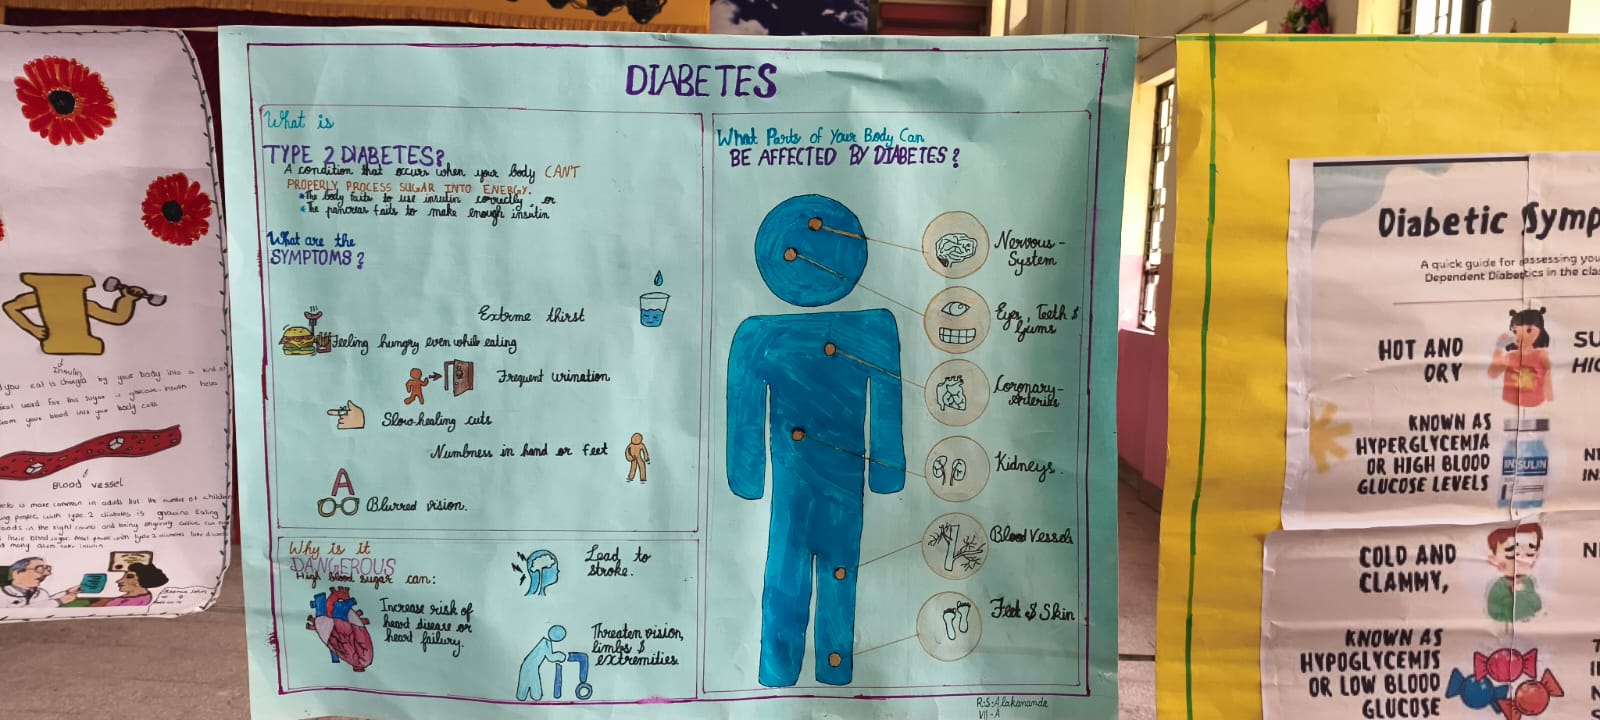 DIABETES
What is
TYPE 2 DIABETES?
A condition that occurs when your body CAN'T
PROPERLY PROCESS SUGAR INTO ENERGY.
The body fails to use insulin correctly or
The pancreas fails to make enough insulin
What are the
SYMPTOMS?
Extrme thirst
Feeling hungry even while eating
Frequent urination
Slow-healing cuts
Numbness in hand or feet
A
Blurred vision.
Why is it
DANGEROUS
High blood sugar can:
Increase risk of
heart disease or
heart failury.
Lead to
stroke.
Threaten vision,
limbs &
extremities
What Parts of Your Body Can
BE AFFECTED BY DIABETES?
Nervous-
System
Eyes, Teeth &
Gums
Coronary-
Arteries
Kidneys.
Blood Vessels
Feet & Skin
R.S.Alakananda
VII-A
you eat is changed by your body into a kind of
word for this sugar is glucose.
from your blood into your body cells.
Blood vessel
is more common in adults but the number of
people with type 2 diabetes is growing Eating
foods in the right and being
their blood sugar. Most people with type 2 diabetes
many
Diabetic Symp
A quick guide for assessing you
Dependent Diabetics in the cla
HOT AND
DRY
SU
HIG
KNOWN AS
HYPERGLYCEMIA
OR HIGH BLOOD
GLUCOSE LEVELS
INSULIN
NE
IN
COLD AND
CLAMMY,
NE
KNOWN AS
HYPOGLYCEMIS
OR LOW BLOOD
GLUCOSE